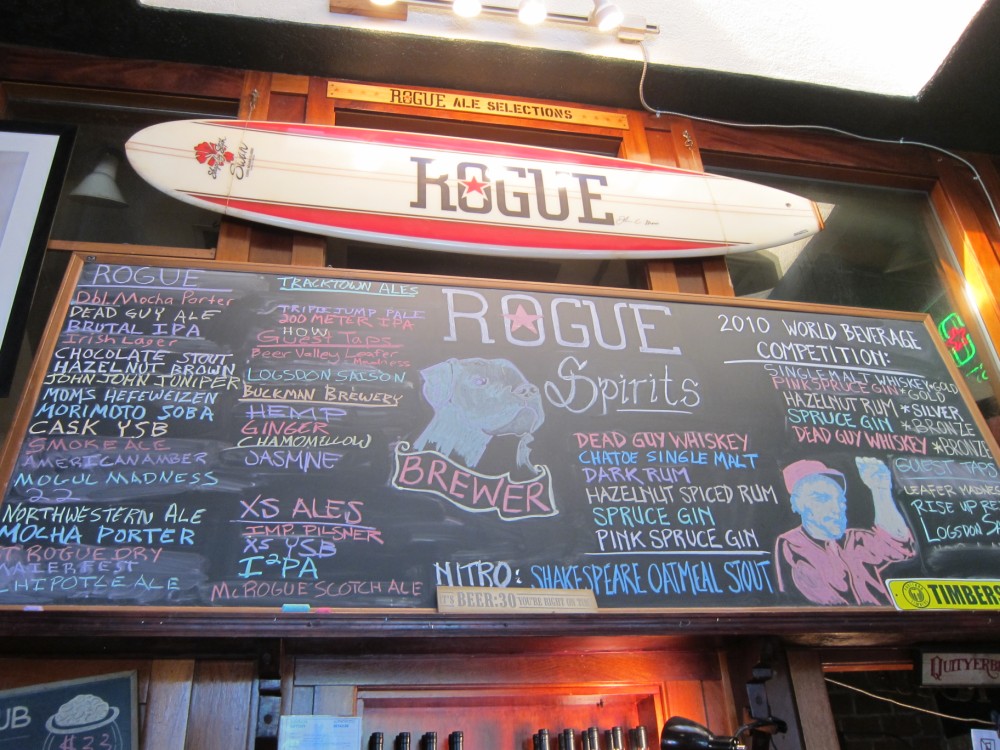 ROGUE ALE SELECTIONS
ROGUE
ROGUE
Dbl. Mocha Porter
DEAD GUY ALE
BRUTAL IPA
Irish Lager
CHOCOLATE STOUT
HAZELNUT BROWN
JOHN JOHN JUNIPER
MOMS HEFEWEIZEN
MORIMOTO SOBA
CASK YSB
SMOKE ALE
AMERICAN AMBER
MOGUL MADNESS
22
NORTHWESTERN ALE
MOCHA PORTER
ROGUE DRY
MAIERFEST
CHIPOTLE ALE
TRACKTOWN ALES
TRIPLE JUMP PALE
200 METER IPA
HOW
Guest Taps
Beer Valley Leafer
Madness
LOGSDON SAISON
BUCKMAN BREWERY
HEMP
GINGER
CHAMOMELLOW
JASMINE
XS ALES
IMP. PILSNER
XS YSB
I²PA
McROGUE SCOTCH ALE
BREWER
ROGUE
Spirits
DEAD GUY WHISKEY
CHATOE SINGLE MALT
DARK RUM
HAZELNUT SPICED RUM
SPRUCE GIN
PINK SPRUCE GIN
NITRO: SHAKESPEARE OATMEAL STOUT
BEER:30
2010 WORLD BEVERAGE
COMPETITION:
SINGLE MALT WHISKEY *GOLD
PINK SPRUCE GIN *GOLD
HAZELNUT RUM *SILVER
SPRUCE GIN *BRONZE
DEAD GUY WHISKEY *BRONZE
GUEST TAPS
LEAFER MADNESS
RISE UP RE
LOGSDON SA
TIMBERS
QUITYERB
UB
$22